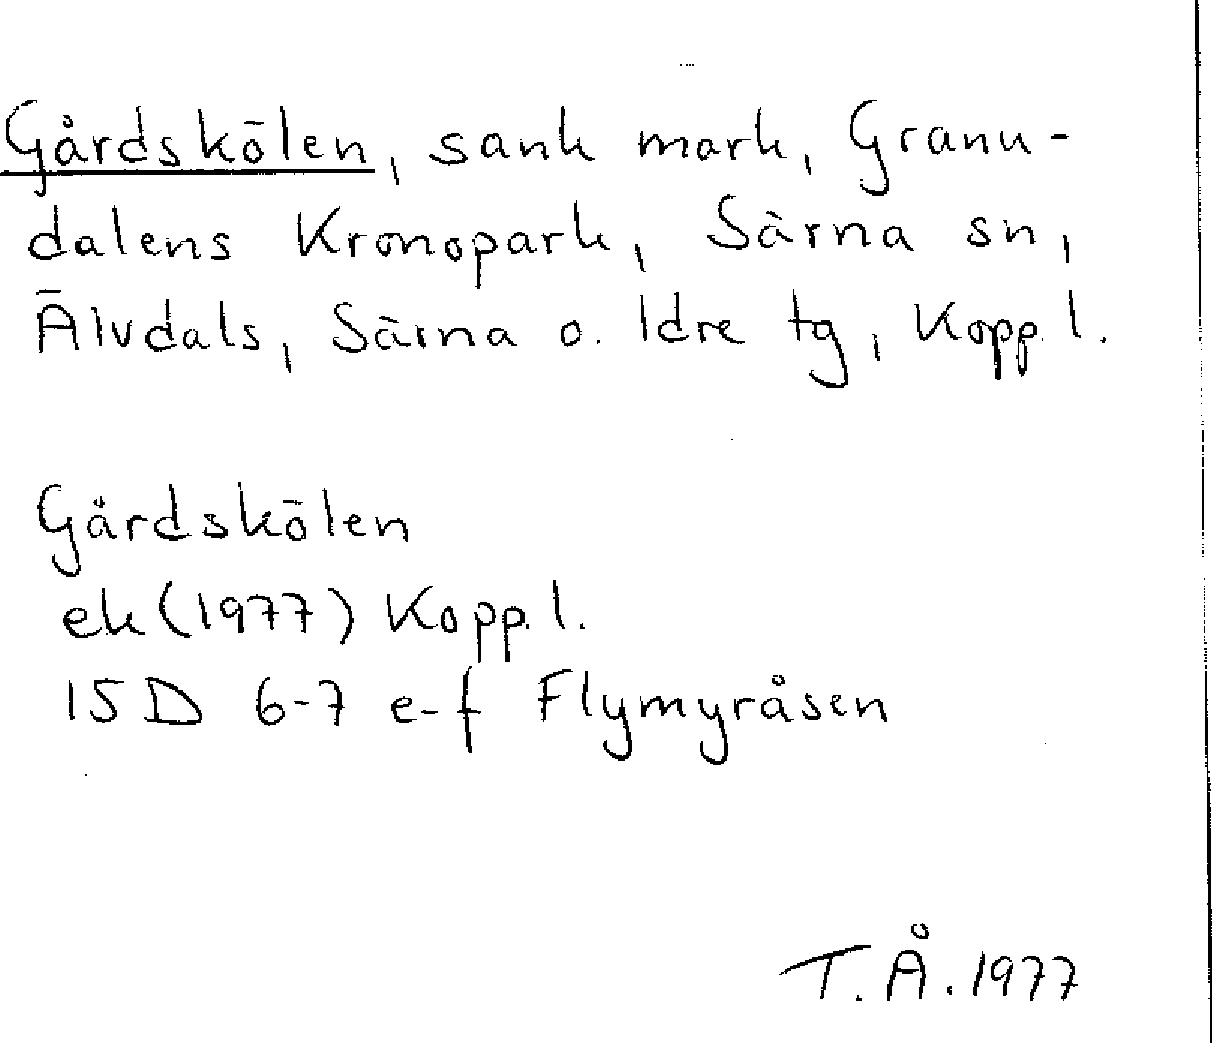 Gårdskölen, sank mark, Granu-
dalens Kronopark, Särna sn,
Älvdals, Särna o. Idre tg, Kopp. l.
Gårdskölen
ek (1977) Kopp. l.
15 D 6-7 e-f Flymyråsen
T. Å. 1977